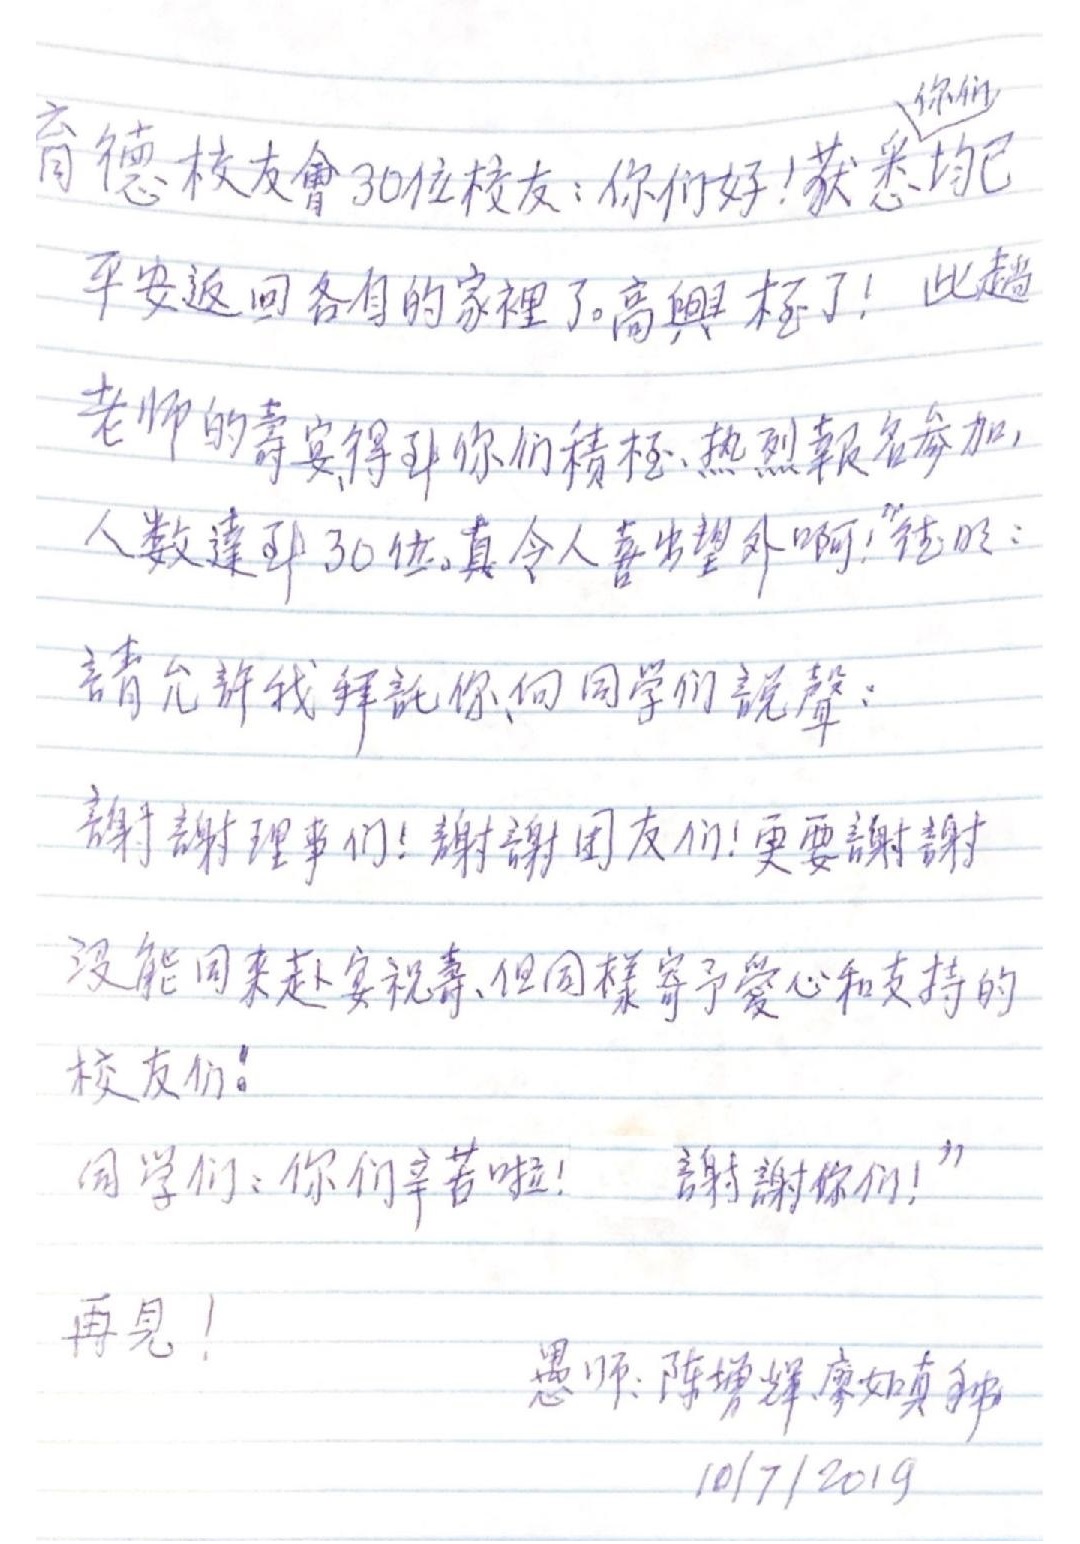 你们
育德校友會30位校友：你们好！获悉均已
平安返回各自的家裡了。高興极了！ 此趟
老师的壽宴、得到你们積极、热烈報名參加，
人数達到30位。真令人喜出望外啊！"德明：
請允許我拜託你、向同学们説聲：
謝謝理事们！謝謝团友们！更要謝謝
没能回来赴宴祝壽、但同樣寄予愛心和支持的
校友们！
同学们：你们辛苦啦！ 謝謝你们！"
再見！
愚师：陈增輝、廖如真
10/7/2019